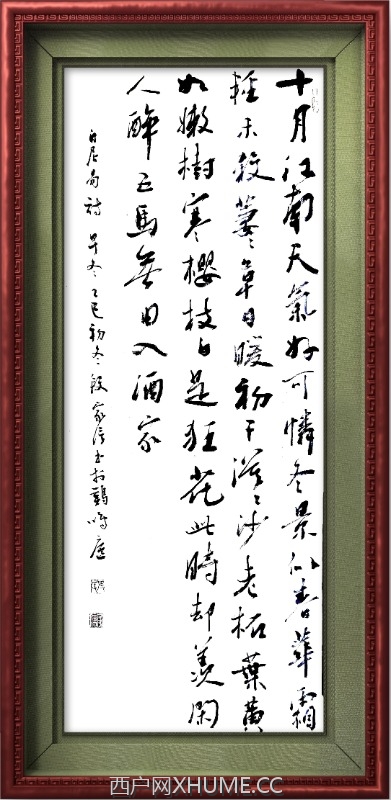 十月江南天氣好可憐冬景似春華霜
輕未殺萋々草日暖初干漠々沙老柘葉黄
如嫩樹寒櫻枝白是狂花此時却羡閑
人醉五馬無由入酒家
白居易詩早冬乙巳初冬段家
西户网XHUME.CC